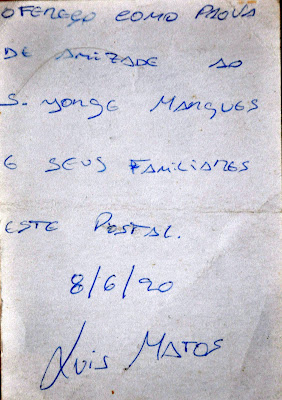 OFEREÇO COMO PROVA
DE AMIZADE AO
S. JORGE MARQUES
E SEUS FAMILIARES
ESTE POSTAL.
8/6/90
Luis MATOS